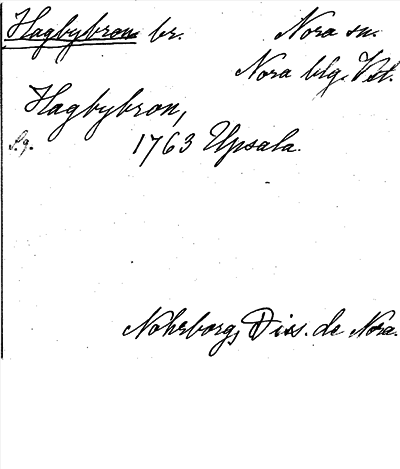 Hagbybron br. Nora sn.
Nora blg. Vstl.
Hagbybron,
S.g. 1763 Upsala.
Nohrborg, Diss. de Nora.